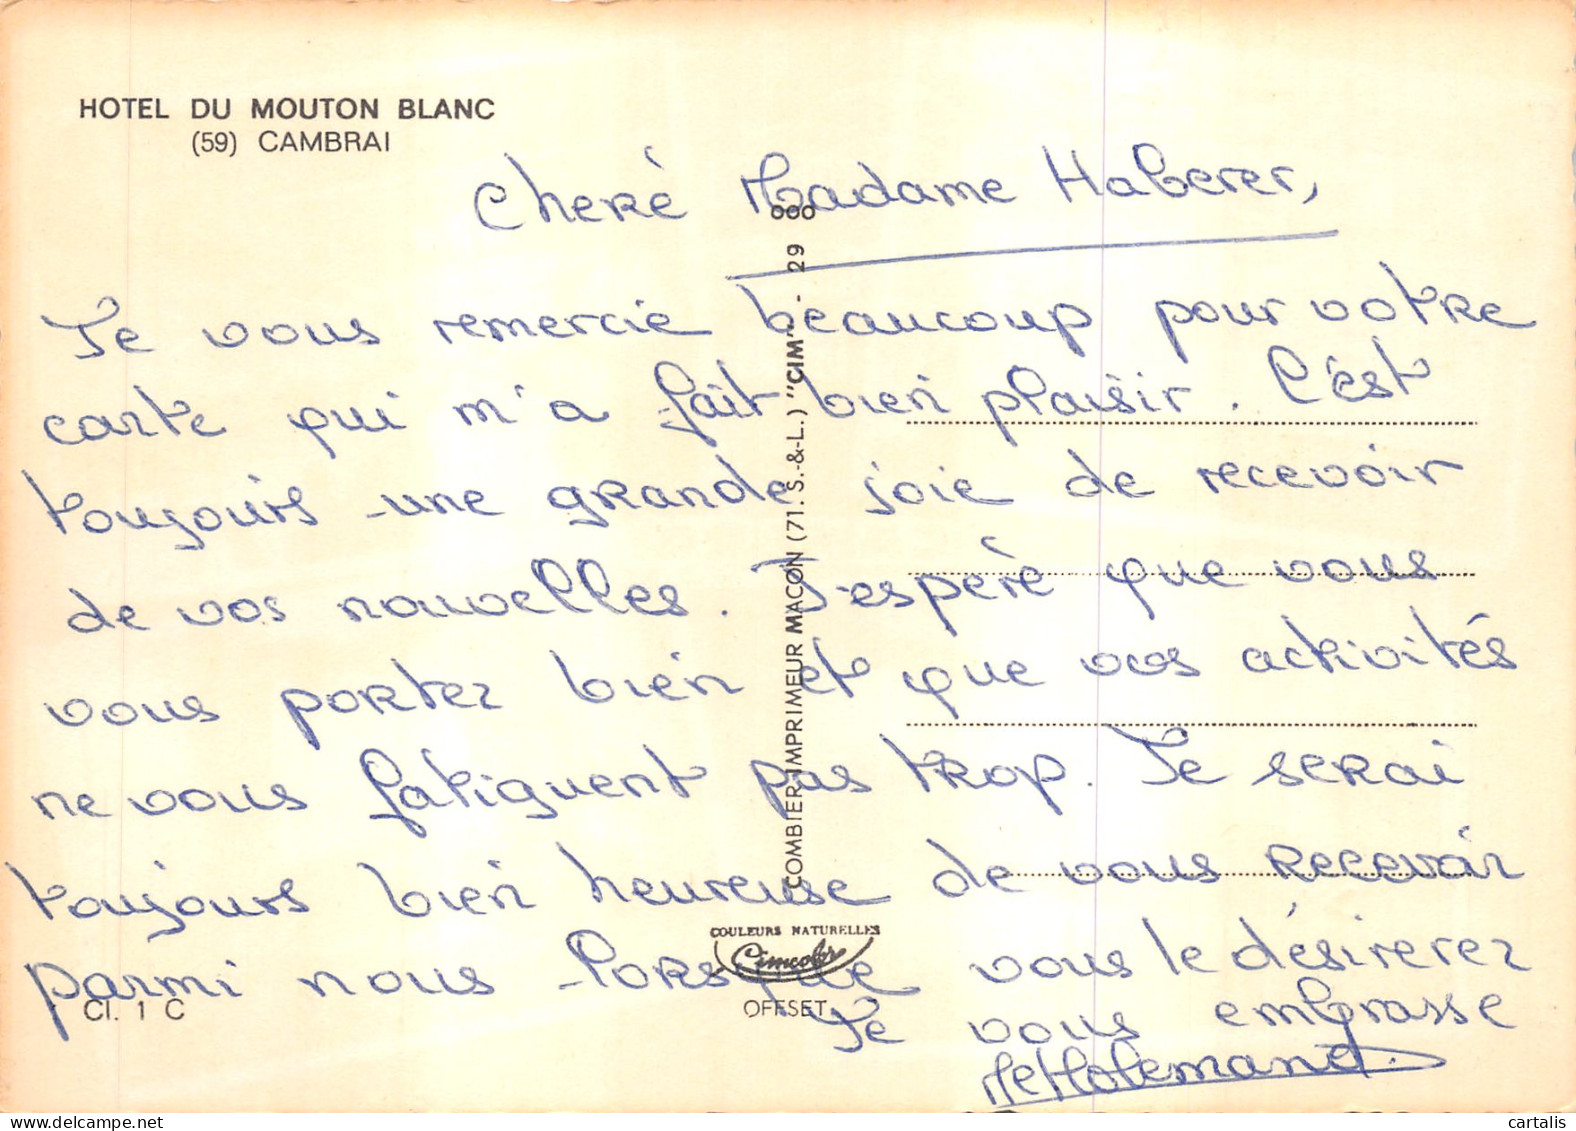 HOTEL DU MOUTON BLANC
(59) CAMBRAI
Cherè Madame Haberer,
Je vous remercie beaucoup pour votre
carte qui m'a fait bien plaisir. C'est
toujours une grande joie de recevoir
de vos nouvelles. J'espère que vous
vous portez bien et que vos activités
ne vous fatiguent pas trop. Je serai
toujours bien heureuse de vous recevoir
parmi nous lorsque vous le désirerez
Je vous embrasse
COMBIER IMPRIMEUR MACON (71. S.-&-L.) "CIM" - 29 000
COULEURS NATURELLES
Cimcolor
OFFSET
Cl. 1 C
cartalis